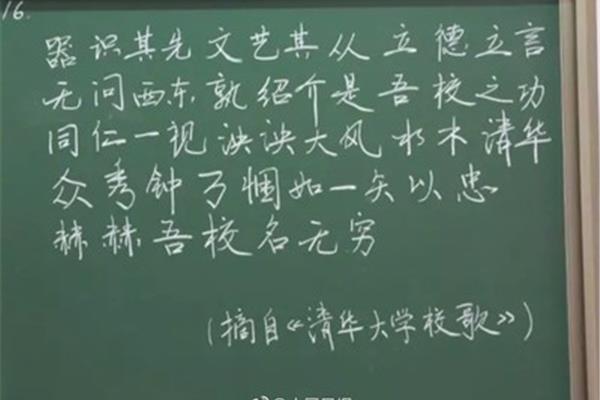 16.
器识其先 文艺其从 立德立言
无问西东 孰绍介是 吾校之功
同仁一视 泱泱大风 水木清华
众秀钟 万悃如一 矢以忠
赫赫吾校名无穷
(摘自《清华大学校歌》)